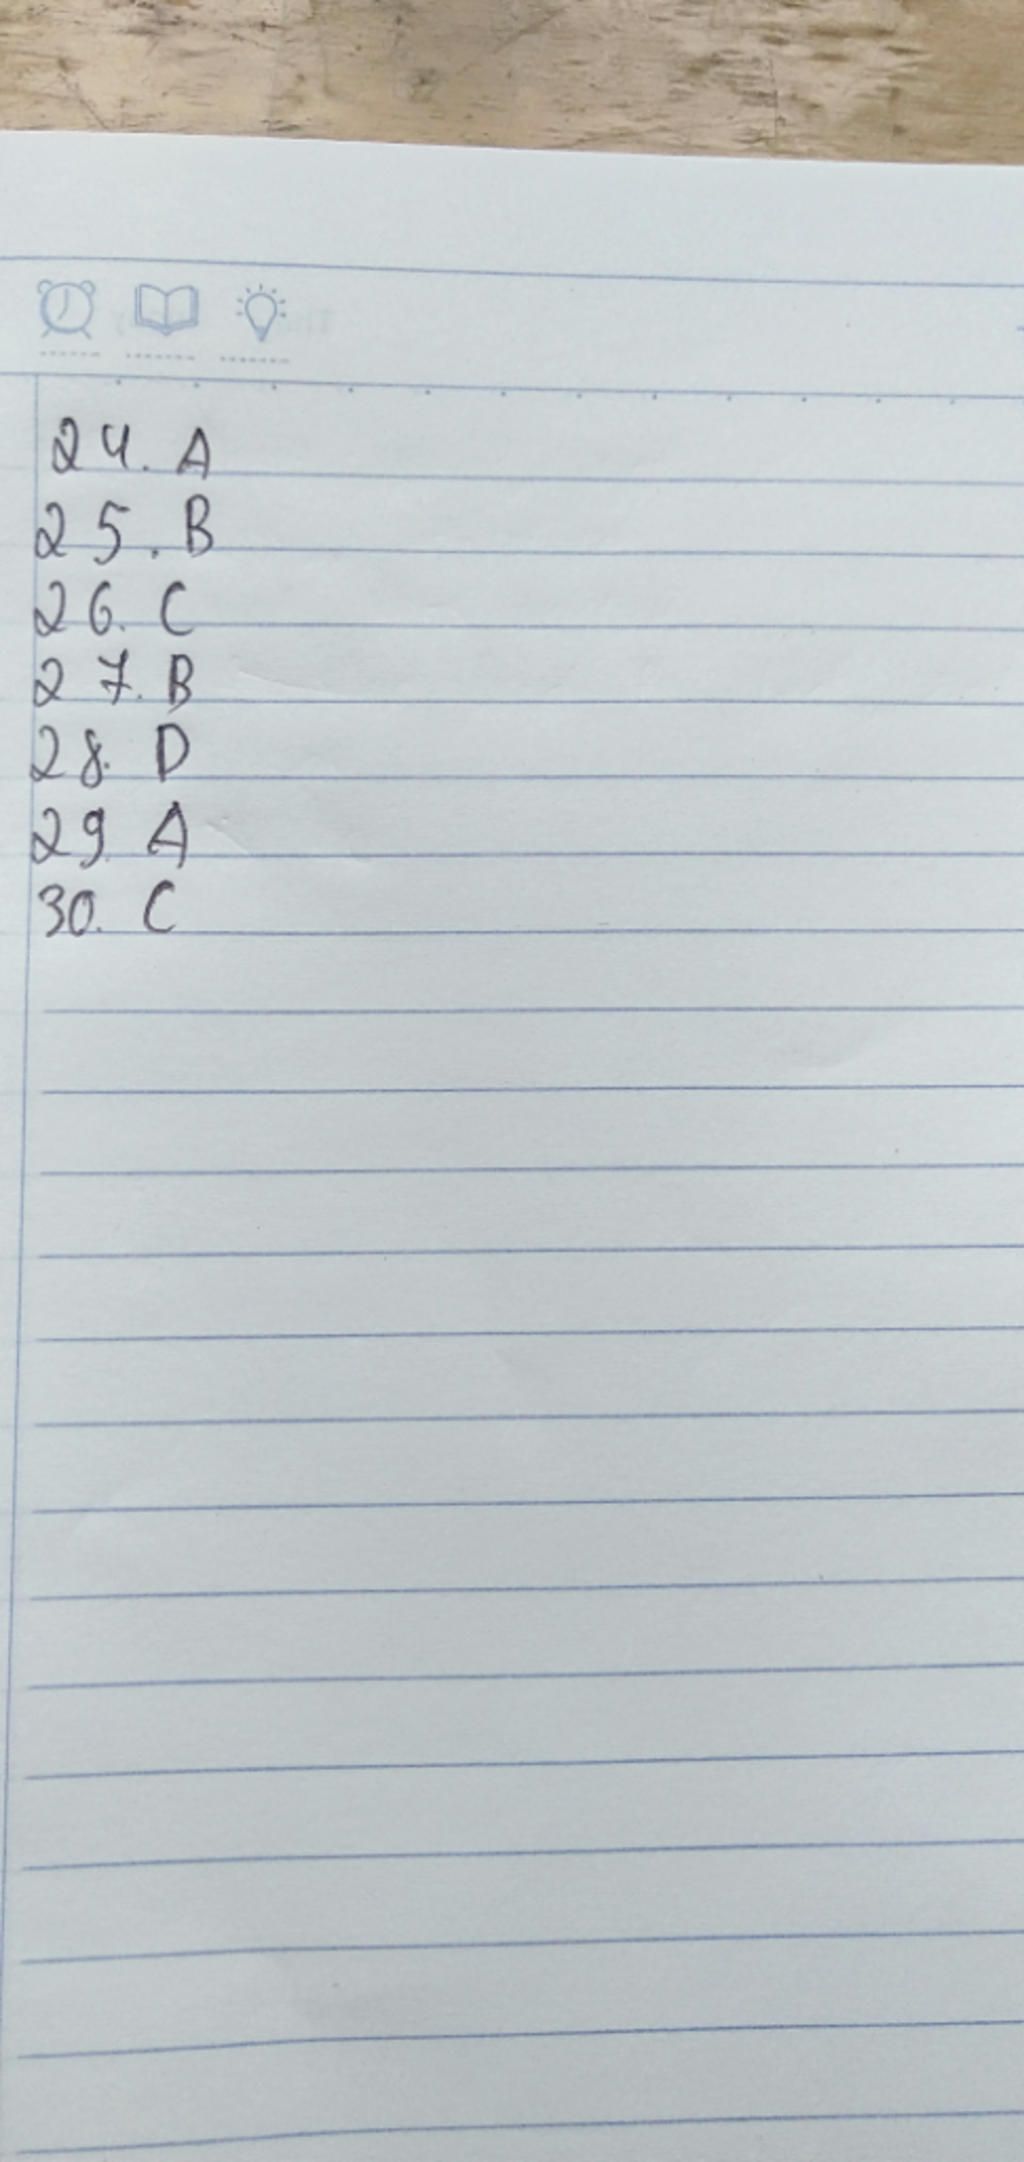 24. A
25. B
26. C
27. B
28. D
29. A
30. C